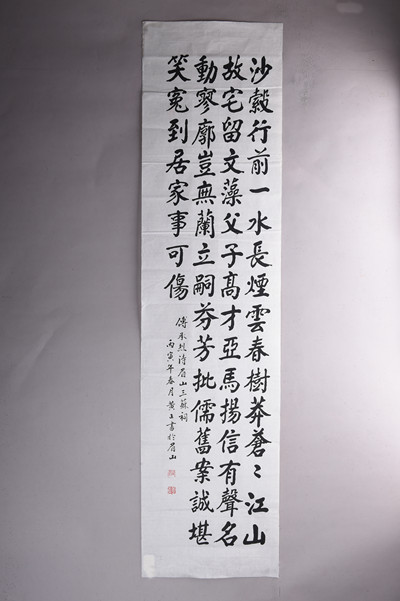 沙縠行前一水長煙雲春樹莽蒼〻江山
故宅留文藻父子高才亞馬揚信有聲名
動寥廓豈無蘭立嗣芬芳批儒舊案誠堪
笑冤到居家事可傷
傅承烈詩眉山三蘇祠
丙寅年春月黃上書於眉山